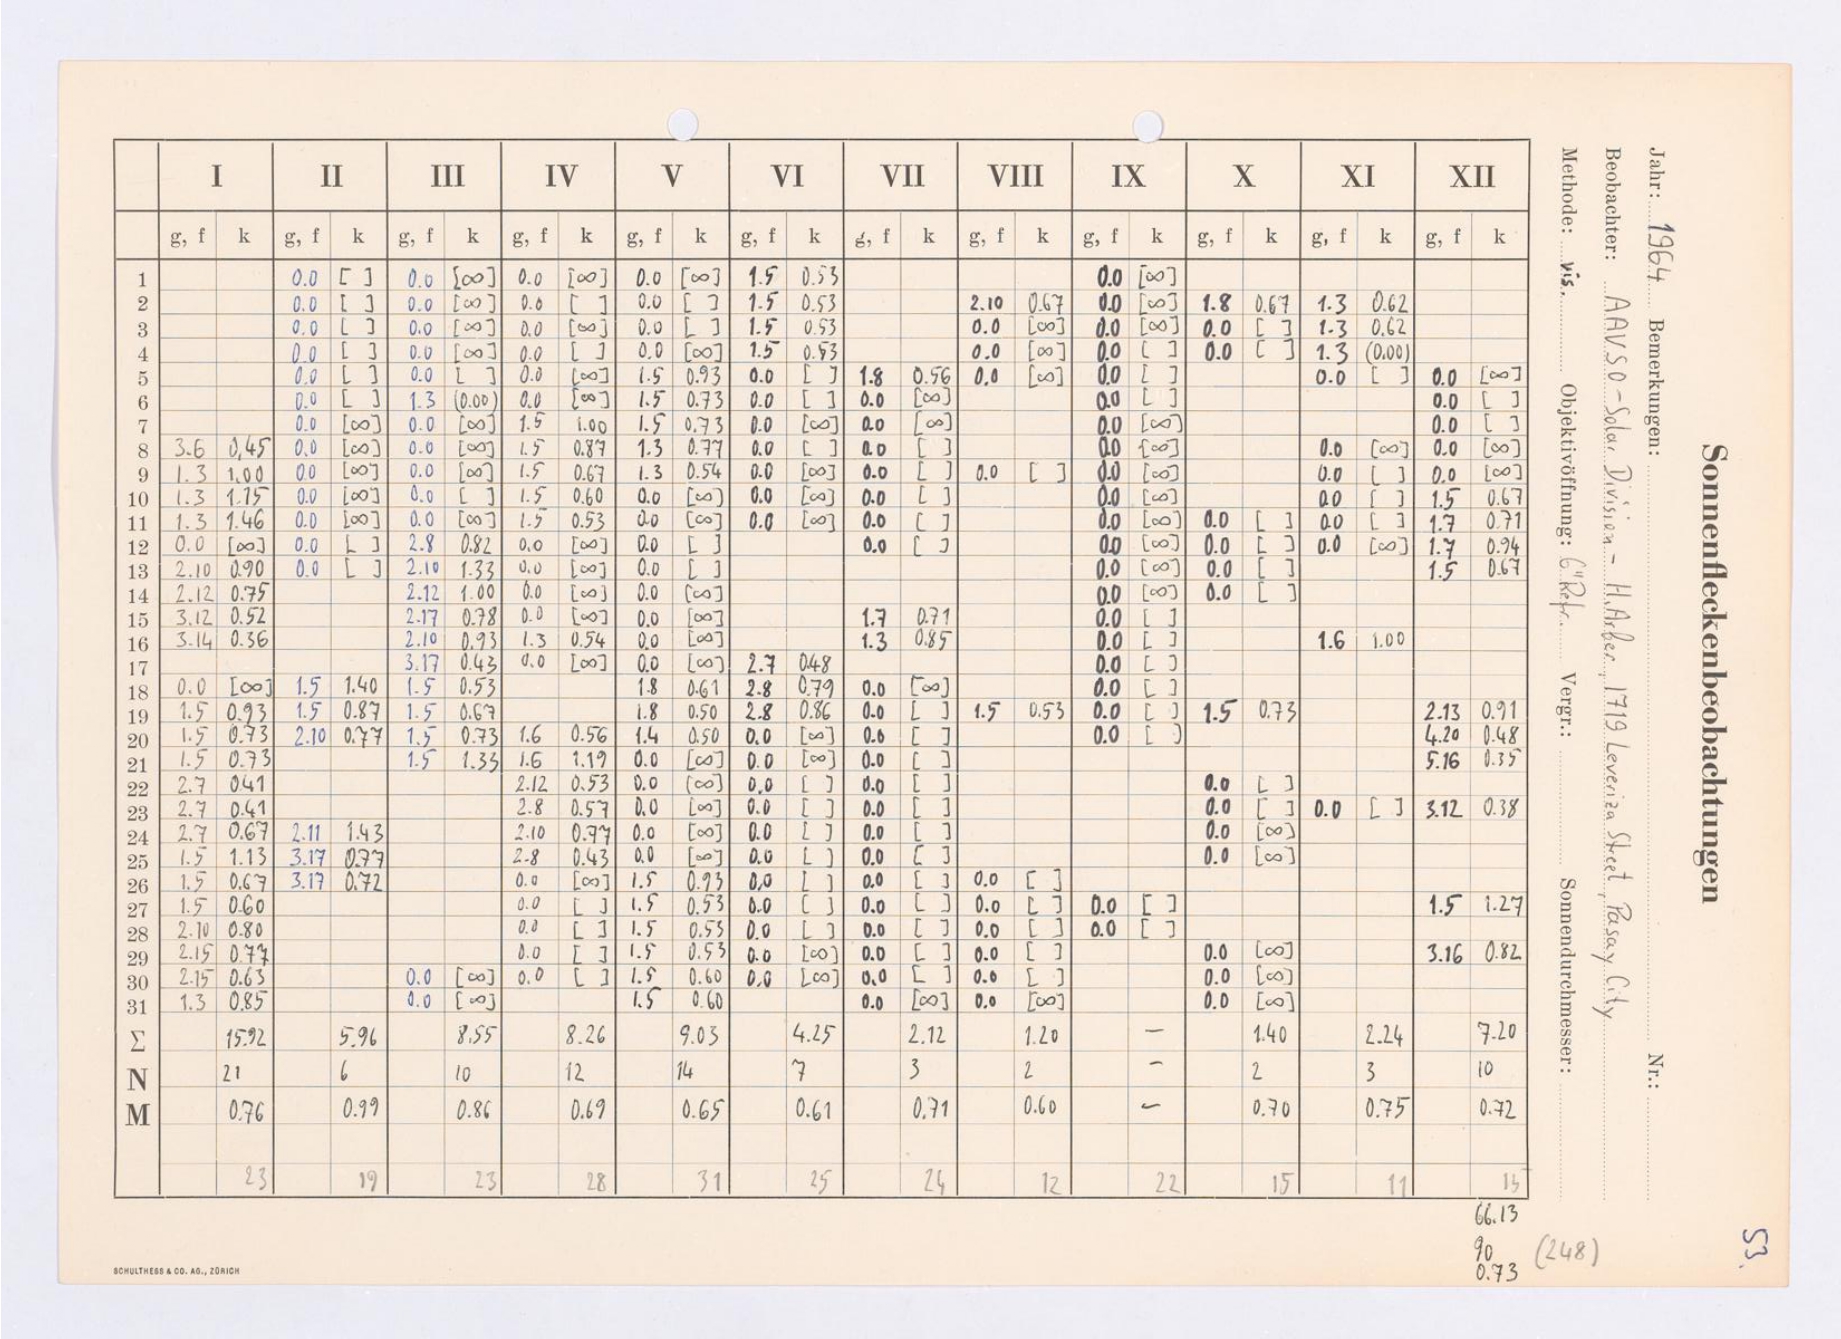 Sonnenfleckenbeobachtungen
Jahr: 1964 Bemerkungen: Nr.:
Beobachter: AAVSO-Solar Division - H. Arber, 1719 Leveriza Street, Pasay City
Methode: vis. Objektivöffnung: 6" Refr. Vergr.: Sonnendurchmesser:
53.
I II III IV V VI VII VIII IX X XI XII
g, f k g, f k g, f k g, f k g, f k g, f k g, f k g, f k g, f k g, f k g, f k g, f k
1 0.0 [ ] 0.0 [∞] 0.0 [∞] 0.0 [∞] 1.5 0.53 0.0 [∞]
2 0.0 [ ] 0.0 [∞] 0.0 [ ] 0.0 [ ] 1.5 0.53 2.10 0.67 0.0 [∞] 1.8 0.67 1.3 0.62
3 0.0 [ ] 0.0 [∞] 0.0 [∞] 0.0 [ ] 1.5 0.53 0.0 [∞] 0.0 [∞] 0.0 [ ] 1.3 0.62
4 0.0 [ ] 0.0 [∞] 0.0 [ ] 0.0 [∞] 1.5 0.53 0.0 [∞] 0.0 [ ] 0.0 [ ] 1.3 (0.00)
5 0.0 [ ] 0.0 [ ] 0.0 [∞] 1.5 0.93 0.0 [ ] 1.8 0.56 0.0 [∞] 0.0 [ ] 0.0 [ ] 0.0 [∞]
6 0.0 [ ] 1.3 (0.00) 0.0 [∞] 1.5 0.73 0.0 [ ] 0.0 [∞] 0.0 [ ] 0.0 [ ]
7 0.0 [∞] 0.0 [∞] 1.5 1.00 1.5 0.73 0.0 [∞] 0.0 [∞] 0.0 [∞] 0.0 [ ]
8 3.6 0,45 0.0 [∞] 0.0 [∞] 1.5 0.87 1.3 0.77 0.0 [ ] 0.0 [ ] 0.0 [∞] 0.0 [∞] 0.0 [∞]
9 1.3 1,00 0.0 [∞] 0.0 [∞] 1.5 0.67 1.3 0.54 0.0 [∞] 0.0 [ ] 0.0 [ ] 0.0 [∞] 0.0 [ ] 0.0 [∞]
10 1.3 1.15 0.0 [∞] 0.0 [ ] 1.5 0.60 0.0 [∞] 0.0 [∞] 0.0 [ ] 0.0 [∞] 0.0 [ ] 1.5 0.67
11 1.3 1.46 0.0 [∞] 0.0 [∞] 1.5 0.53 0.0 [∞] 0.0 [∞] 0.0 [ ] 0.0 [∞] 0.0 [ ] 0.0 [ ] 1.7 0.71
12 0.0 [∞] 0.0 [ ] 2.8 0.82 0.0 [∞] 0.0 [ ] 0.0 [ ] 0.0 [∞] 0.0 [ ] 0.0 [∞] 1.7 0.94
13 2.10 0.90 0.0 [ ] 2.10 1.33 0.0 [∞] 0.0 [ ] 0.0 [∞] 0.0 [ ] 1.5 0.67
14 2.12 0.75 2.12 1.00 0.0 [∞] 0.0 [∞] 0.0 [∞] 0.0 [ ]
15 3.12 0.52 2.17 0.78 0.0 [∞] 0.0 [∞] 1.7 0.71 0.0 [ ]
16 3.14 0.36 2.10 0.93 1.3 0.54 0.0 [∞] 1.3 0.85 0.0 [ ] 1.6 1.00
17 3.17 0.43 0.0 [∞] 0.0 [∞] 2.7 0.48 0.0 [ ]
18 0.0 [∞] 1.5 1.40 1.5 0.53 1.8 0.61 2.8 0.79 0.0 [∞] 0.0 [ ]
19 1.5 0.93 1.5 0.87 1.5 0.67 1.8 0.50 2.8 0.86 0.0 [ ] 1.5 0.53 0.0 [ ] 1.5 0.73 2.13 0.91
20 1.5 0.73 2.10 0.77 1.5 0.73 1.6 0.56 1.4 0.50 0.0 [∞] 0.0 [ ] 0.0 [ ] 4.20 0.48
21 1.5 0.73 1.5 1.33 1.6 1.19 0.0 [∞] 0.0 [∞] 0.0 [ ] 5.16 0.35
22 2.7 0.41 2.12 0.53 0.0 [∞] 0.0 [ ] 0.0 [ ] 0.0 [ ]
23 2.7 0.41 2.8 0.57 0.0 [∞] 0.0 [ ] 0.0 [ ] 0.0 [ ] 0.0 [ ] 3.12 0.38
24 2.7 0.67 2.11 1.43 2.10 0.77 0.0 [∞] 0.0 [ ] 0.0 [ ] 0.0 [∞]
25 1.5 1.13 3.17 0.77 2.8 0.43 0.0 [∞] 0.0 [ ] 0.0 [ ] 0.0 [∞]
26 1.5 0.67 3.17 0.72 0.0 [∞] 1.5 0.93 0.0 [ ] 0.0 [ ] 0.0 [ ]
27 1.5 0.60 0.0 [ ] 1.5 0.53 0.0 [ ] 0.0 [ ] 0.0 [ ] 0.0 [ ] 1.5 1.27
28 2.10 0.80 0.0 [ ] 1.5 0.53 0.0 [ ] 0.0 [ ] 0.0 [ ] 0.0 [ ]
29 2.15 0.77 0.0 [ ] 1.5 0.53 0.0 [∞] 0.0 [ ] 0.0 [ ] 0.0 [∞] 3.16 0.82
30 2.15 0.63 0.0 [∞] 0.0 [ ] 1.5 0.60 0.0 [∞] 0.0 [ ] 0.0 [ ] 0.0 [∞]
31 1.3 0.85 0.0 [∞] 1.5 0.60 0.0 [∞] 0.0 [∞] 0.0 [∞]
Σ 15.92 5.96 8.55 8.26 9.03 4.25 2.12 1.20 – 1.40 2.24 7.20
N 21 6 10 12 14 7 3 2 – 2 3 10
M 0.76 0.99 0.86 0.69 0.65 0.61 0.71 0.60 – 0.70 0.75 0.72
23 19 23 28 31 25 24 12 22 15 11 15
66.13
90 (248)
0.73
SCHULTHESS & CO. AG., ZÜRICH